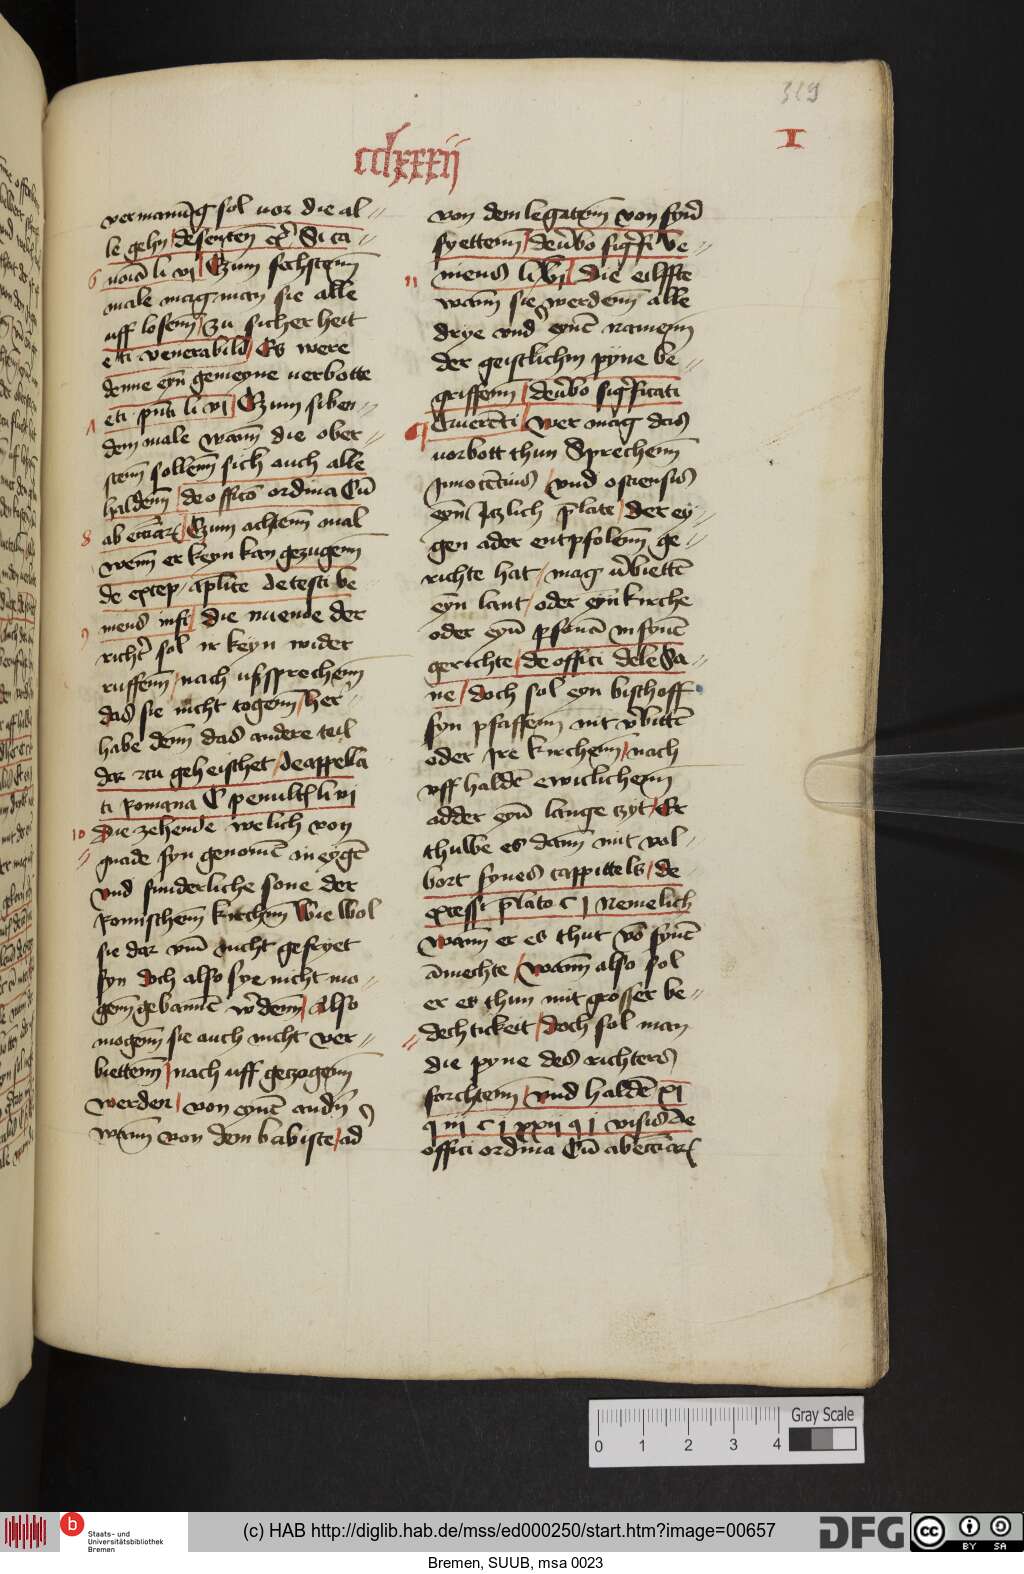 319
I
cclxxxij
vermanūg sol vor die al„
le gehn / de senten eẜ Si ca„
6 nōicā li vj / Czum sechstenn̄
male mag man sie alle
uff losenn̄ / zu sicherheit
e ti venerabili / Es were
denne eyn̄ gemeyne verbotte
7 e ti pn̄ti li vj / Czum siben„
dem male wann̄ die ober„
stenn̄ sollenn̄ sich auch alle
haldenn̄ / de officō ordina Cū
8 ab eccīar / Czum achtenn̄ mal
wenn̄ er keyn kan gezugenn̄
de excep / aplīce de testi ve
9 niens in fi / die nuende der
richt̓ sol ir keyn wider
ruffenn̄ / nach uszsprechenn̄
das sie nicht togenn̄ / her„
habe denn̄ das andere teil
dar zcu geheischet / de appella
ti Romana C penult̄ li vj
10 die zehende welich von
gnade syn genomē in eygē
vnd sunderliche sone der
Romischenn̄ kirchin̄ Wie wol
sie dar vm̄ nicht gefryet
syn doch also sye nicht mo„
genn̄ gebannē w̓denn̄ / Also
mogenn̄ sie auch nicht ver„
biettenn̄ / nach uff getzogenn̄
werden / von eynē andn̓
wann̄ von dem babiste / ad̓
von dem legatenn̄ von syn̓
syettenn̄ / de v̓bo sigf̓i ve„
11 niens li vj / Die eilffte
wann̄ sie werdenn̄ alle
drye vnd eynē namenn̄
der geistlichin̄ pyne be„
griffenn̄ / de v̓bo sig̓ficati
Querēti / wer mag das
vorbott thun Sprechenn̄
Innocēcius / vnd ostiensis
eyn̄ Itzlich p̄late / der ey„
gen ader entpfolenn̄ ge„
richte hat / mag v̓biettē
eyn lant / oder eyn̄ kirche
oder eyn̄ ꝑsonā in synē
gerichte / de offici dele Sa„
ne / doch sol eyn bischoff
syn pfaffenn̄ nit v̓bittē
oder Ire kirchenn̄ / nach
vff haldē ewiclichenn̄
adder eyn̄ lange czyt / Er
thuwe es dann̄ mit vol„
bort synes cappittels / de
excessi p̄lato c j Nemelich
wann̄ er es thut vō synē
āmechte / wann̄ also sol
er es thun mit grosser be„
dechtickeit / doch sol man
die pyne des richters
forchtenn̄ / vnd haldē xj
q iij c j xxij q j visis de
offici ordina Cū ab eccīar
Gray Scale
0 1 2 3 4
b
Staats- und
Universitätsbibliothek
Bremen
(c) HAB http://diglib.hab.de/mss/ed000250/start.htm?image=00657
DFG
cc
BY SA
Bremen, SUUB, msa 0023